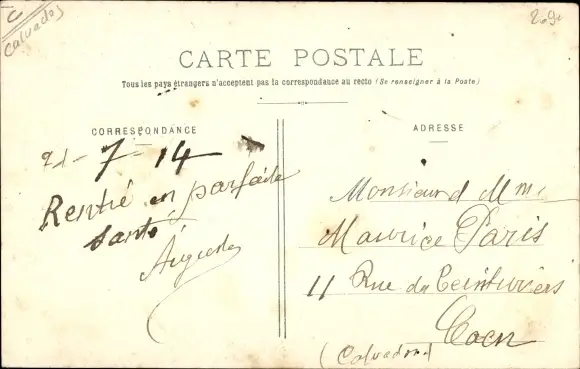 C
Calvados
CARTE POSTALE
Tous les pays étrangers n'acceptent pas la correspondance au recto (Se renseigner à la Poste)
CORRESPONDANCE
21-7-14
Rentré en parfaite
santé
Auguste
ADRESSE
Monsieur & Mme
Maurice Paris
11 Rue des Teinturiers
Caen
(Calvados)